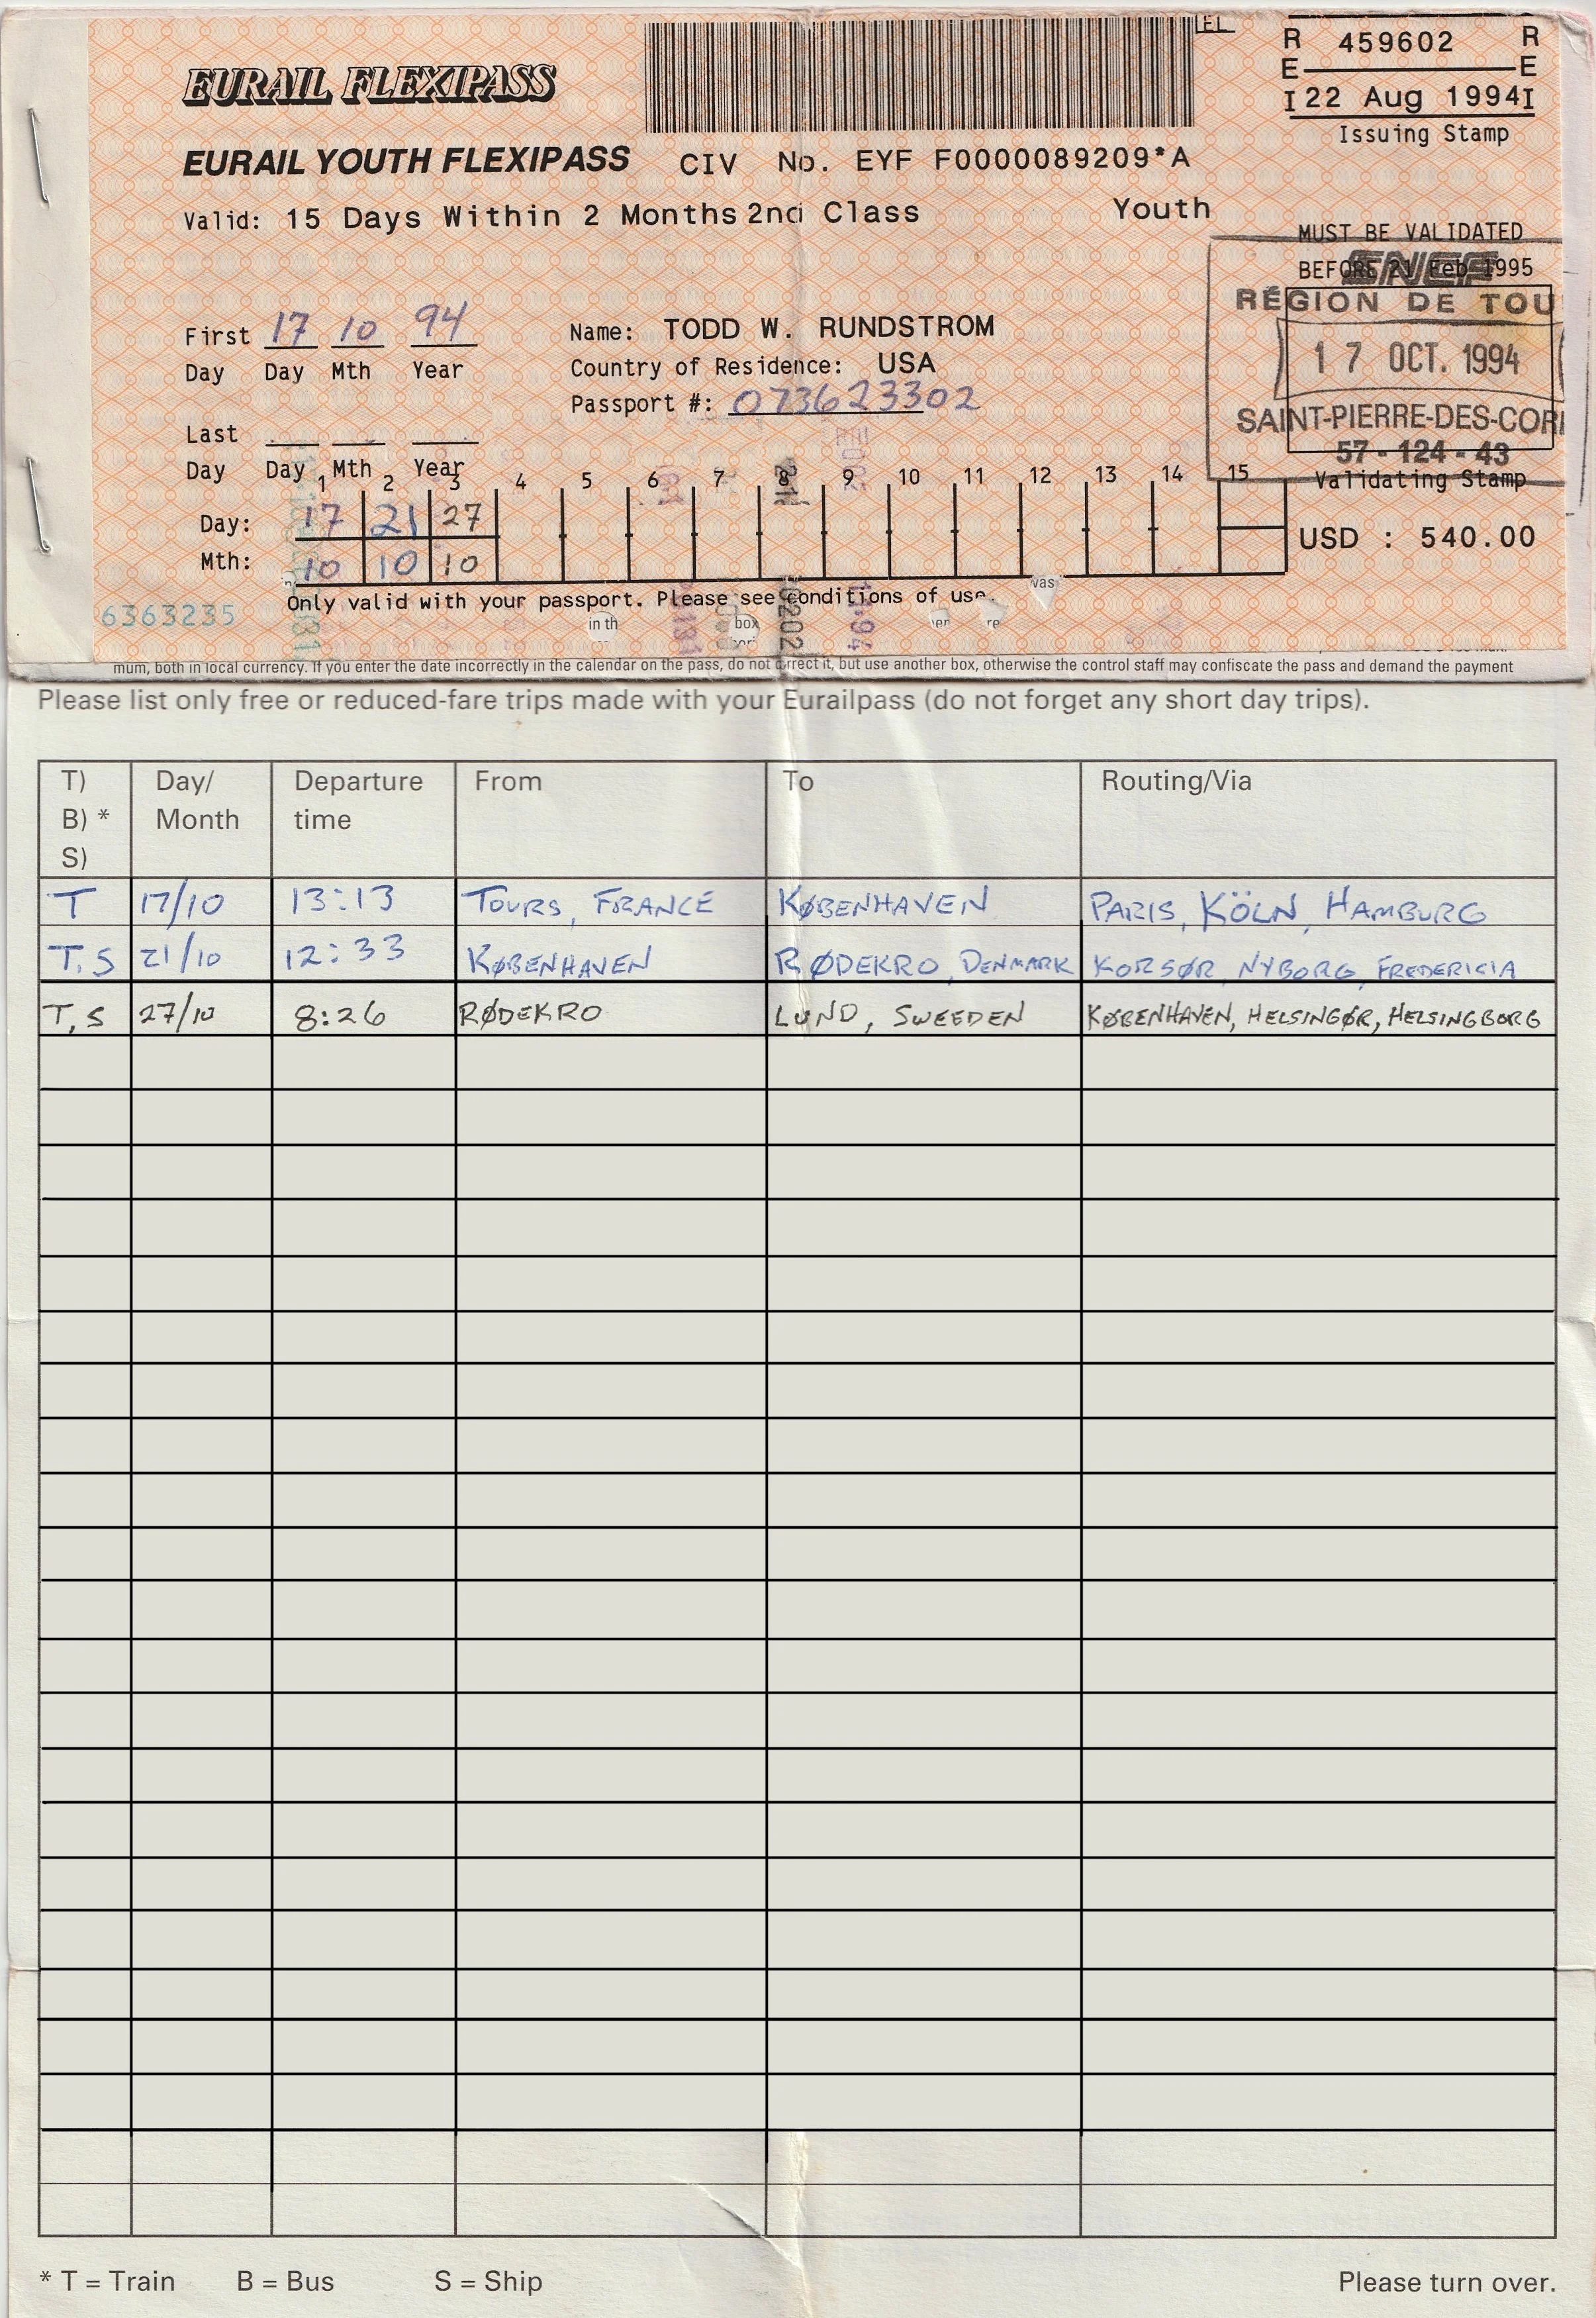 EL
EURAIL FLEXIPASS
R 459602 R
E E
I 22 Aug 1994 I
Issuing Stamp
EURAIL YOUTH FLEXIPASS CIV No. EYF F0000089209*A
Valid: 15 Days Within 2 Months 2nd Class Youth
MUST BE VALIDATED
BEFORE 21 Feb 1995
SNCF
RÉGION DE TOU
17 OCT. 1994
SAINT-PIERRE-DES-COR
57-124-43
Validating Stamp
First 17 10 94
Day Day Mth Year
Name: TODD W. RUNDSTROM
Country of Residence: USA
Passport #: 073623302
Last
Day Day Mth Year
1 2 3 4 5 6 7 8 9 10 11 12 13 14 15
Day: 17 21 27
Mth: 10 10 10
USD : 540.00
Only valid with your passport. Please see conditions of use.
6363235
in th box
was
mum, both in local currency. If you enter the date incorrectly in the calendar on the pass, do not correct it, but use another box, otherwise the control staff may confiscate the pass and demand the payment
Please list only free or reduced-fare trips made with your Eurailpass (do not forget any short day trips).
T) Day/ Departure From To Routing/Via
B) * Month time
S)
T 17/10 13:13 TOURS, FRANCE KØBENHAVEN PARIS, KÖLN, HAMBURG
T, S 21/10 12:33 KØBENHAVEN RØDEKRO, DENMARK KORSØR, NYBORG, FREDERICIA
T, S 27/10 8:26 RØDEKRO LUND, SWEEDEN KØBENHAVEN, HELSINGØR, HELSINGBORG
* T = Train B = Bus S = Ship Please turn over.